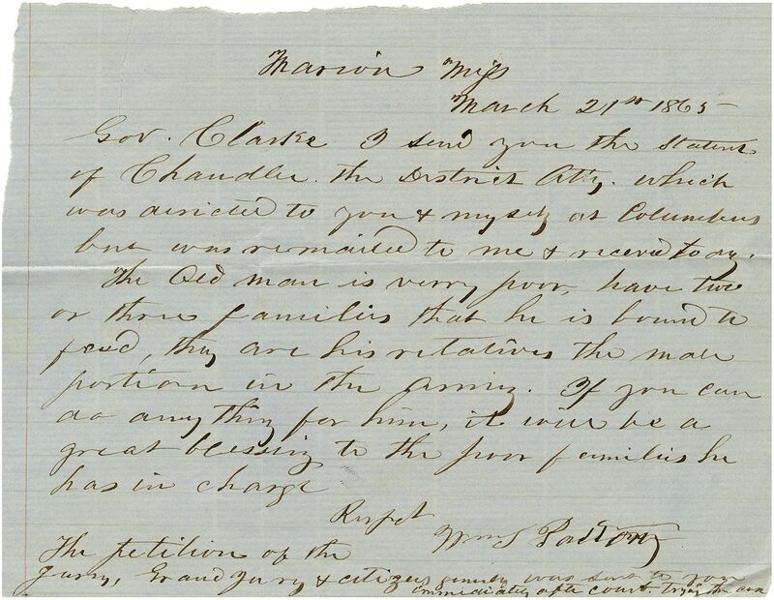 Marion Miss
March 21st 1865
Gov. Clarke I send you the Statent
of Chandler. the District Atty. which
was directed to you & myself at Columbus
but was remailed to me & received to day.
The Old man is verry poor, have two
or three families that he is bound to
feed, they are his relatives the male
portion in the army. If you can
do any thing for him, it will be a
great blessing to the poor families he
has in charge
Respct
Wm S Patton
The petition of the
Jury, Grand Jury & citizens was sent to you
immediately after court. trying the